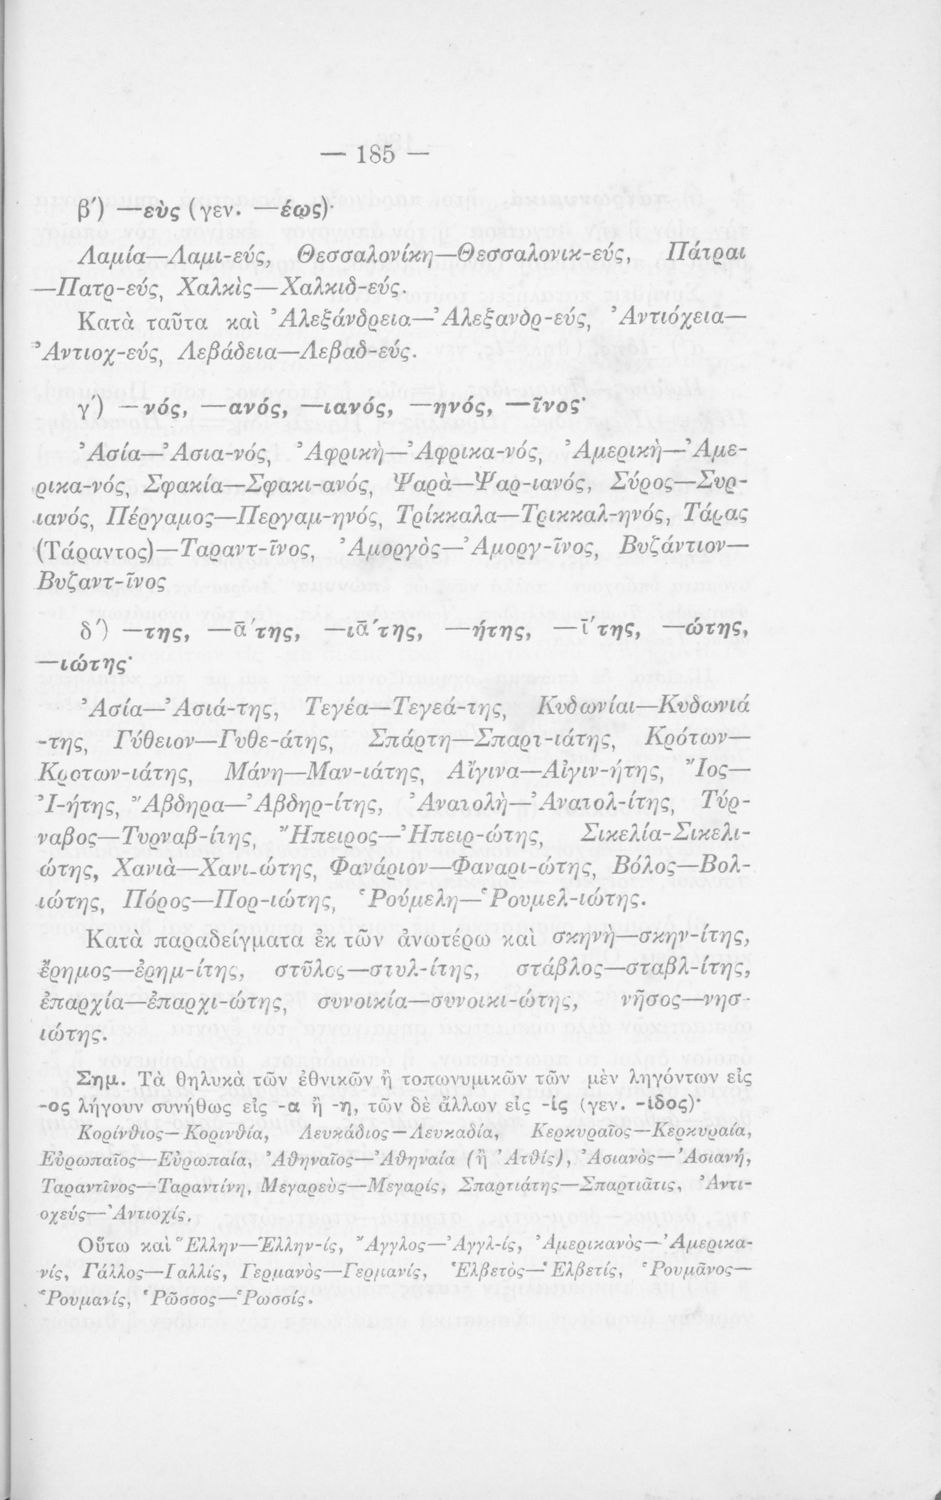 — 185 —
β′) —εὺς (γεν. —έως)·
Λαμία—Λαμι-εύς, Θεσσαλονίκη—Θεσσαλονικ-εύς, Πάτραι
—Πατρ-εύς, Χαλκὶς—Χαλκιδ-εύς.
Κατὰ ταῦτα καὶ Ἀλεξάνδρεια—Ἀλεξανδρ-εύς, Ἀντιόχεια—
Ἀντιοχ-εύς, Λεβάδεια—Λεβαδ-εύς.
γ′) —νός, —ανός, —ιανός, —ηνός, —ῖνος·
Ἀσία—Ἀσια-νός, Ἀφρικὴ—Ἀφρικα-νός, Ἀμερικὴ—Ἀμε-
ρικα-νός, Σφακία—Σφακι-ανός, Ψαρὰ—Ψαρ-ιανός, Σύρος—Συρ-
ιανός, Πέργαμος—Περγαμ-ηνός, Τρίκκαλα—Τρικκαλ-ηνός, Τάρας
(Τάραντος)—Ταραντ-ῖνος, Ἀμοργὸς—Ἀμοργ-ῖνος, Βυζάντιον—
Βυζαντ-ῖνος
δ′) —της, —ᾱ́της, —ιᾱ́της, —ήτης, —ῑ́της, —ώτης,
—ιώτης·
Ἀσία—Ἀσιά-της, Τεγέα—Τεγεά-της, Κυδωνίαι—Κυδωνιά
-της, Γύθειον—Γυθε-άτης, Σπάρτη—Σπαρτ-ιάτης, Κρότων—
Κροτων-ιάτης, Μάνη—Μαν-ιάτης, Αἴγινα—Αἰγιν-ήτης, Ἴος—
Ἰ-ήτης, Ἄβδηρα—Ἀβδηρ-ίτης, Ἀνατολὴ—Ἀνατολ-ίτης, Τύρ-
ναβος—Τυρναβ-ίτης, Ἤπειρος—Ἠπειρ-ώτης, Σικελία-Σικελι-
ώτης, Χανιὰ—Χανι-ώτης, Φανάριον—Φαναρι-ώτης, Βόλος—Βολ-
ιώτης, Πόρος—Πορ-ιώτης, Ῥούμελη—Ῥουμελ-ιώτης.
Κατὰ παραδείγματα ἐκ τῶν ἀνωτέρω καὶ σκηνὴ—σκην-ίτης,
ἔρημος—ἐρημ-ίτης, στῦλος—στυλ-ίτης, στάβλος—σταβλ-ίτης,
ἐπαρχία—ἐπαρχι-ώτης, συνοικία—συνοικι-ώτης, νῆσος—νησ-
ιώτης.
Σημ. Τὰ θηλυκὰ τῶν ἐθνικῶν ἢ τοπωνυμικῶν τῶν μὲν ληγόντων εἰς
-ος λήγουν συνήθως εἰς -α ἢ -η, τῶν δὲ ἄλλων εἰς -ὶς (γεν. -ίδος)·
Κορίνθιος—Κορινθία, Λευκάδιος—Λευκαδία, Κερκυραῖος—Κερκυραία,
Εὐρωπαῖος—Εὐρωπαία, Ἀθηναῖος—Ἀθηναία (ἢ Ἀτθίς), Ἀσιανὸς—Ἀσιανή,
Ταραντῖνος—Ταραντίνη, Μεγαρεὺς—Μεγαρίς, Σπαρτιάτης—Σπαρτιᾶτις, Ἀντι-
οχεύς—Ἀντιοχίς.
Οὕτω καὶ Ἕλλην—Ἑλλην-ίς, Ἄγγλος—Ἀγγλ-ίς, Ἀμερικανὸς—Ἀμερικα-
νίς, Γάλλος—Γαλλίς, Γερμανὸς—Γερμανίς, Ἑλβετὸς—Ἑλβετίς, Ῥουμᾶνος—
Ῥουμανίς, Ῥῶσσος—Ῥωσσίς.